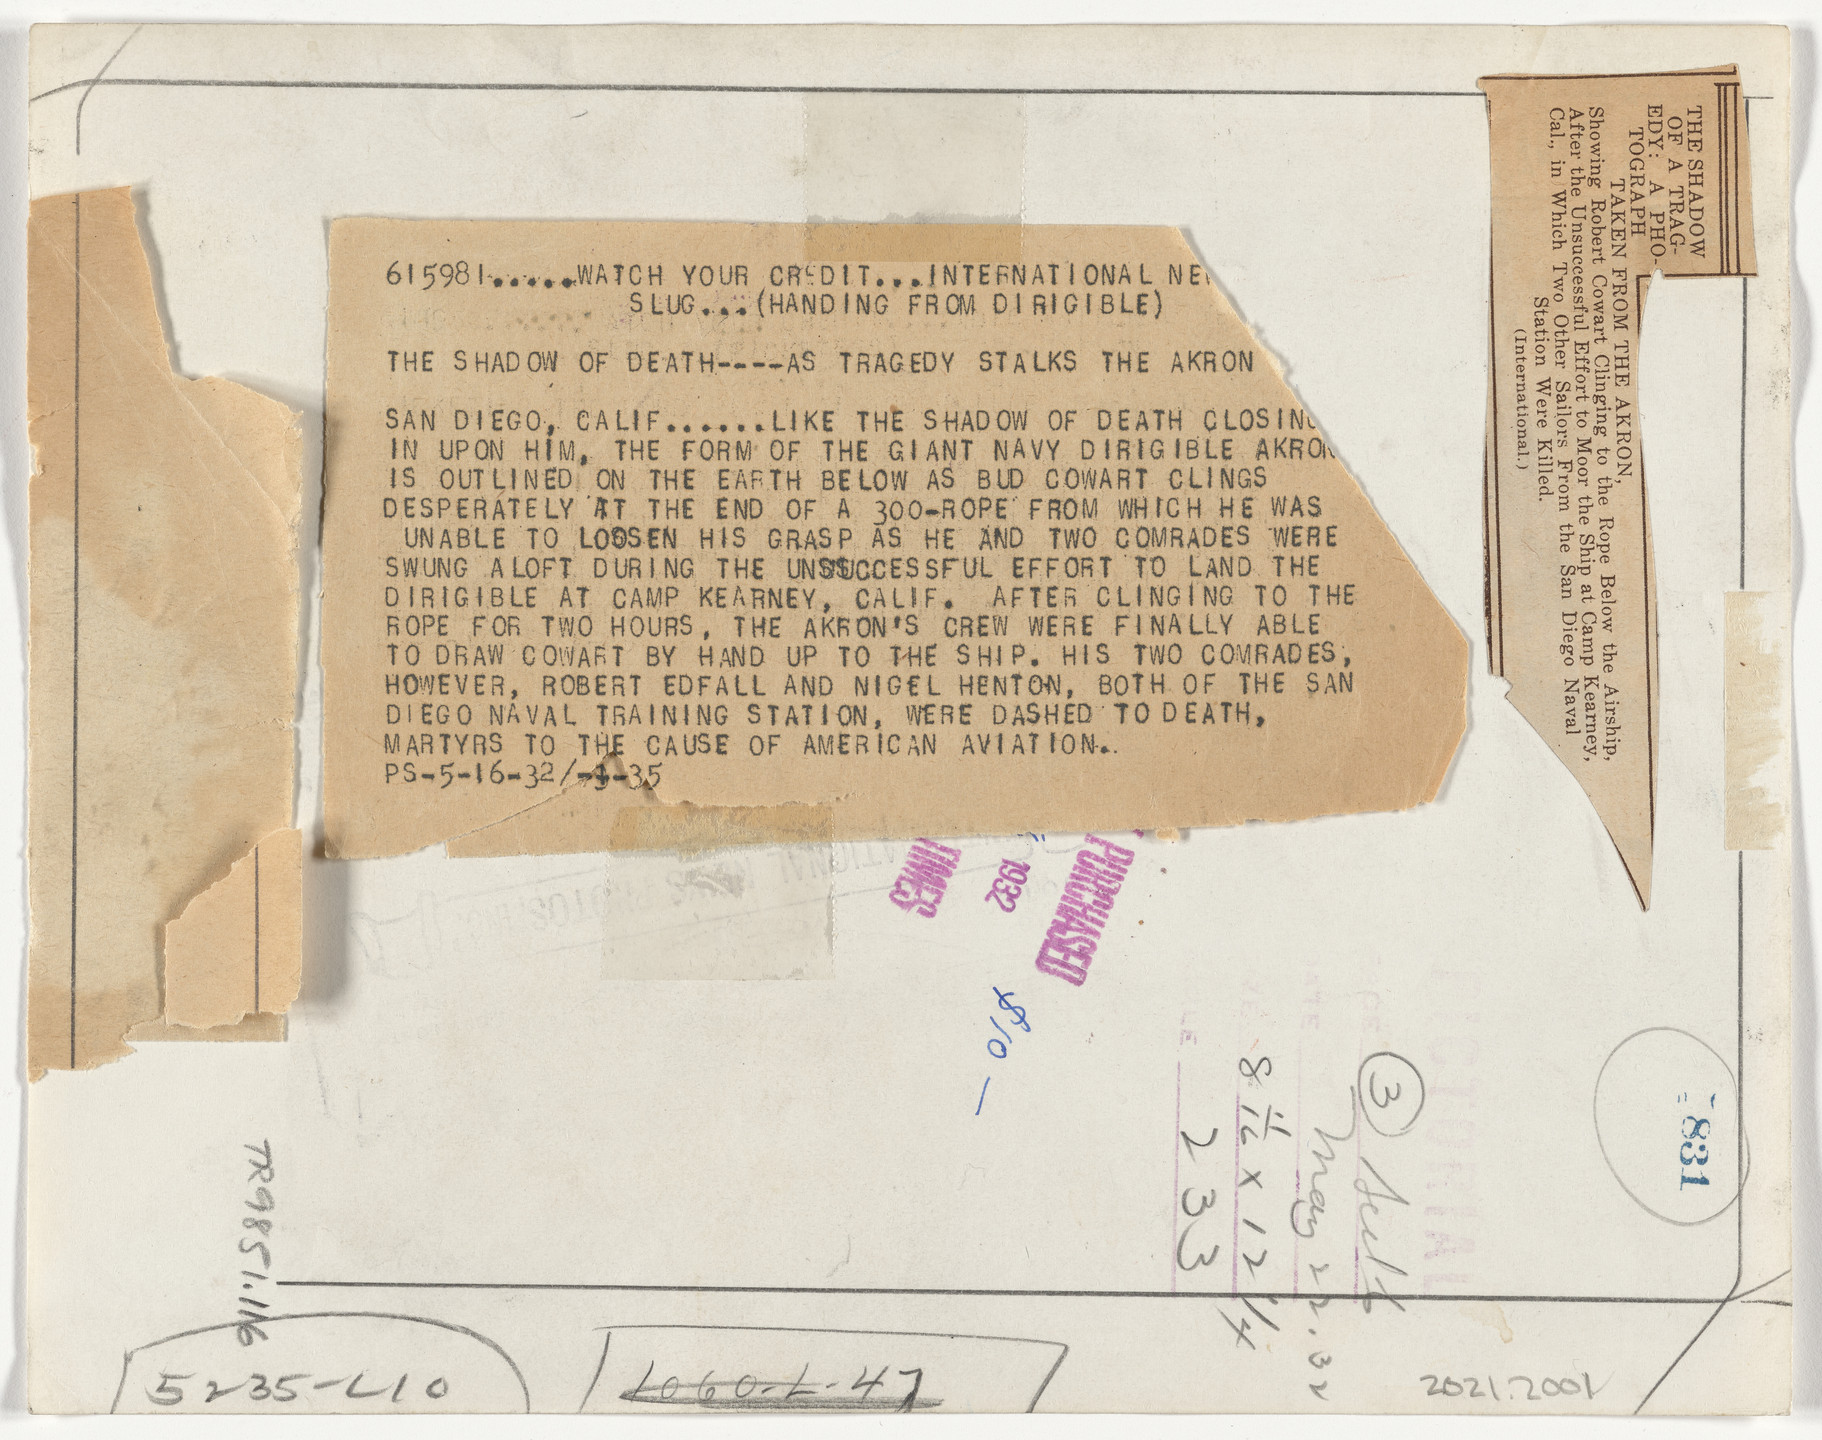 615981.....WATCH YOUR CREDIT...INTERNATIONAL
SLUG...(HANDING FROM DIRIGIBLE)
THE SHADOW OF DEATH----AS TRAGEDY STALKS THE AKRON
SAN DIEGO, CALIF......LIKE THE SHADOW OF DEATH CLOSING
IN UPON HIM, THE FORM OF THE GIANT NAVY DIRIGIBLE AKRON
IS OUTLINED ON THE EARTH BELOW AS BUD COWART CLINGS
DESPERATELY AT THE END OF A 300-ROPE FROM WHICH HE WAS
UNABLE TO LOOSEN HIS GRASP AS HE AND TWO COMRADES WERE
SWUNG ALOFT DURING THE UNSUCCESSFUL EFFORT TO LAND THE
DIRIGIBLE AT CAMP KEARNEY, CALIF. AFTER CLINGING TO THE
ROPE FOR TWO HOURS, THE AKRON'S CREW WERE FINALLY ABLE
TO DRAW COWART BY HAND UP TO THE SHIP. HIS TWO COMRADES,
HOWEVER, ROBERT EDFALL AND NIGEL HENTON, BOTH OF THE SAN
DIEGO NAVAL TRAINING STATION, WERE DASHED TO DEATH,
MARTYRS TO THE CAUSE OF AMERICAN AVIATION..
PS-5-16-32/-1-35
THE SHADOW
OF A TRAG-
EDY: A PHO-
TOGRAPH
TAKEN FROM THE AKRON,
Showing Robert Cowart Clinging to the Rope Below the Airship,
After the Unsuccessful Effort to Moor the Ship at Camp Kearney,
Cal., in Which Two Other Sailors From the San Diego Naval
Station Were Killed.
(International.)
PURCHASED
1932
TIMES
$10 —
831
3
May 22.32
8 11/16 x 12 1/4
233
TR9851.116
5235-L10
1060-L-47
2021.2001